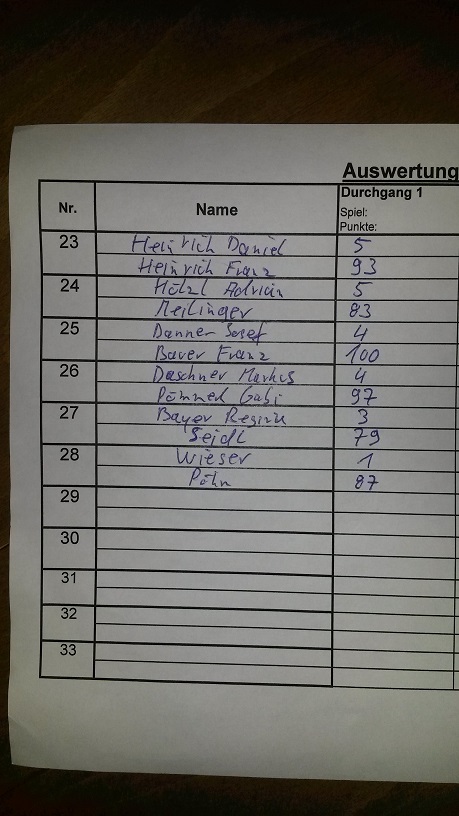 Auswertung
Nr. Name Durchgang 1
Spiel:
Punkte:
23 Heinrich Daniel 5
Heinrich Franz 93
24 Hölzl Adrian 5
Meilinger 83
25 Danner Josef 4
Bauer Franz 100
26 Daschner Markus 4
Pömmerl Gabi 97
27 Bayer Regina 3
Seidl 79
28 Wieser 1
87
29
30
31
32
33